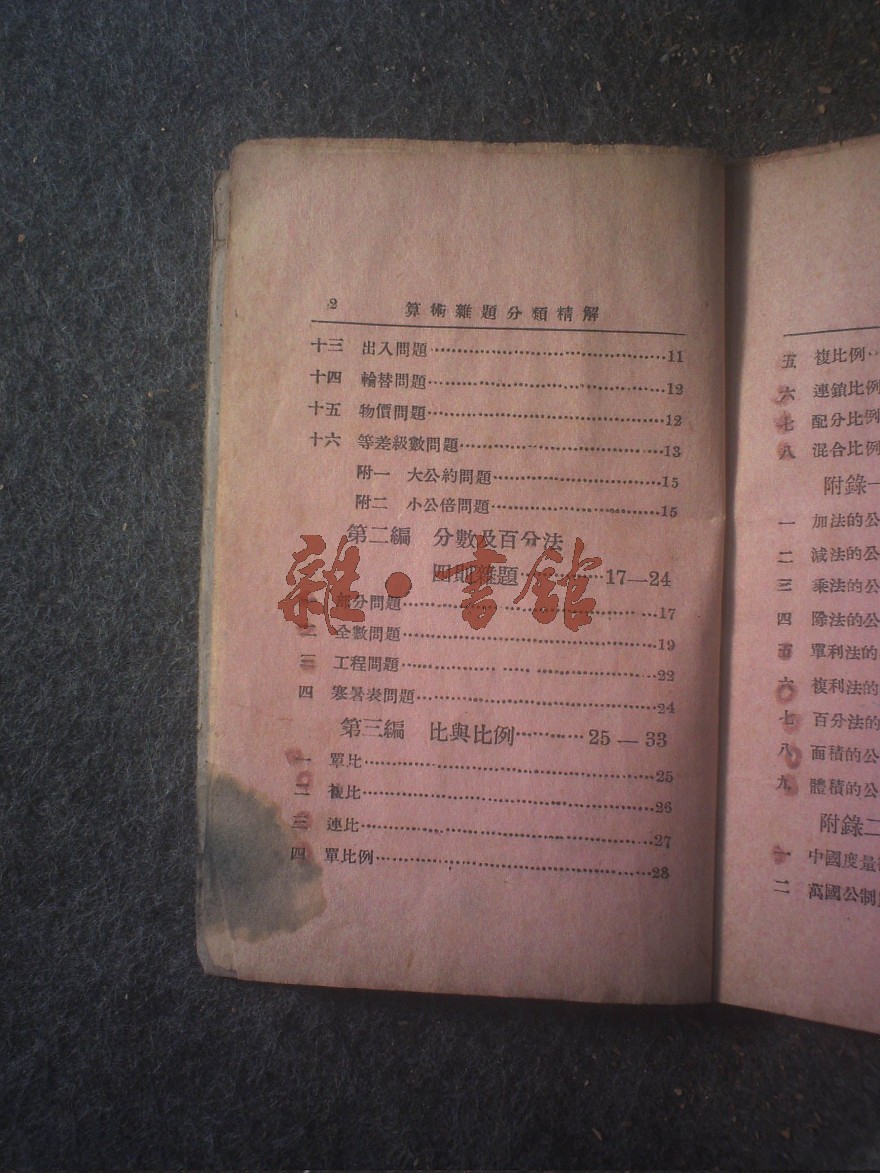 2 算術雜題分類精解
十三 出入問題……………………11
十四 輪替問題……………………12
十五 物價問題……………………12
十六 等差級數問題……………………13
附一 大公約問題……………………15
附二 小公倍問題……………………15
第二編 分數及百分法
四則雜題…………17—24
一 部分問題……………………17
二 全數問題……………………19
三 工程問題……………………22
四 寒暑表問題……………………24
第三編 比與比例…………25—33
一 單比……………………25
二 複比……………………26
三 連比……………………27
四 單比例……………………28
雜·書館
五 複比例
六 連鎖比例
七 配分比例
八 混合比例
附錄一
一 加法的公
二 減法的公
三 乘法的公
四 除法的公
五 單利法的
六 複利法的
七 百分法的
八 面積的公
九 體積的公
附錄二
一 中國度量
二 萬國公制